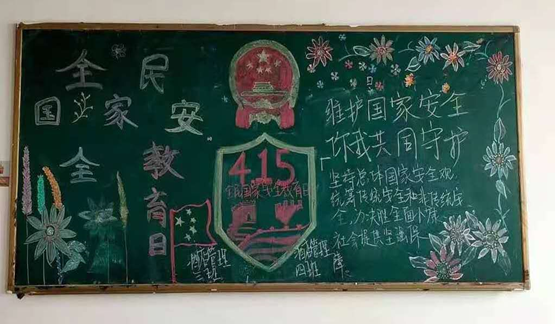 全民
国家安
全教
育
日
415
全民国家安全教育日
维护国家安全
你我共同守护
坚持总体国家安全观
统筹传统安全和非传统安
全,为决胜全面小康
社会提供坚强保
障
管理
三班
管理
四班